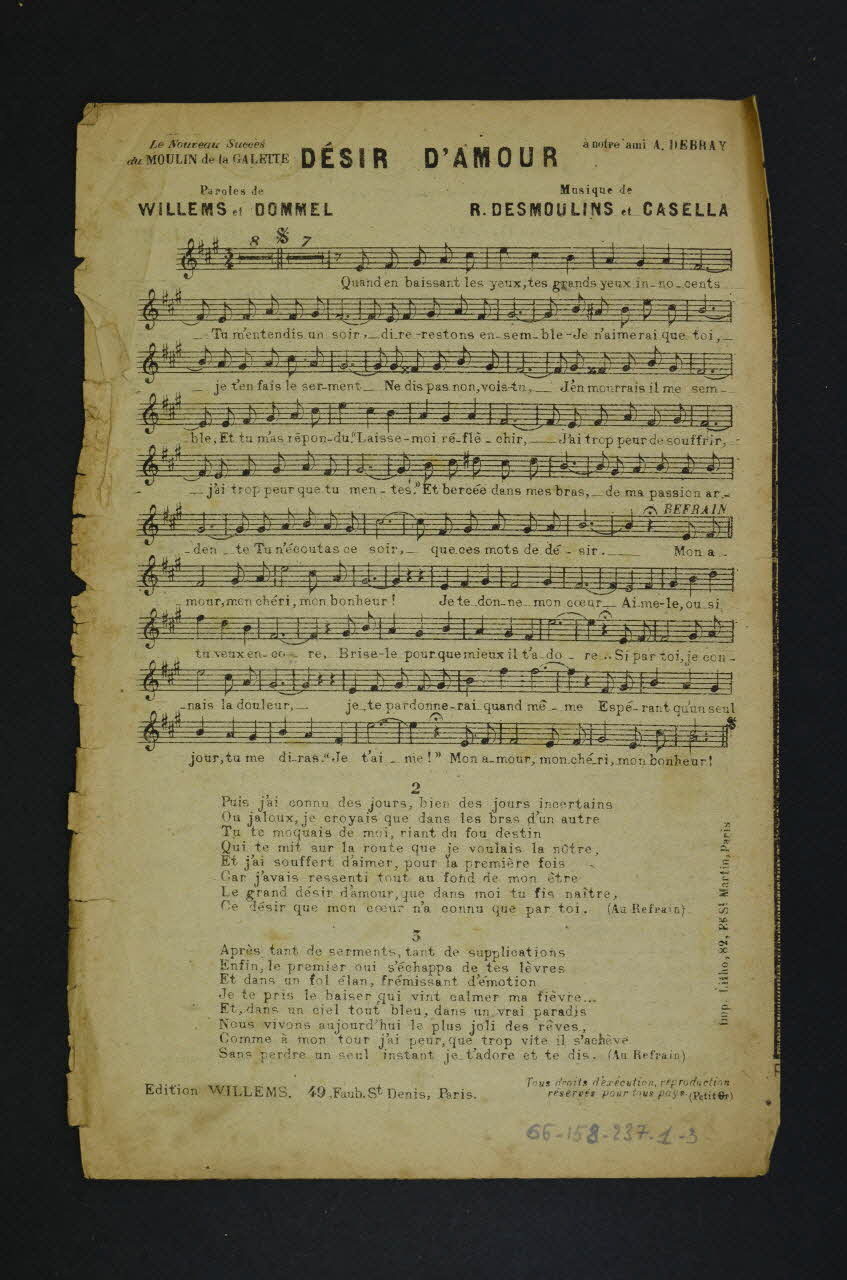 Le Nouveau Succès
du MOULIN de la GALETTE
DÉSIR D'AMOUR
à notre ami A. DEBRAY
Paroles de
WILLEMS et DOMMEL
Musique de
R. DESMOULINS et CASELLA
8 7
Quand en baissant les yeux, tes grands yeux in-no-cents
Tu m'entendis un soir, di-re-restons en-sem-ble-Je n'aimerai que toi,
je t'en fais le ser-ment Ne dis pas non, vois-tu, J'en mourrais il me sem-
ble, Et tu m'as répon-du: "Laisse-moi ré-flé-chir, J'ai trop peur de souffrir,
j'ai trop peur que tu men-tes!" Et bercée dans mes bras, de ma passion ar-
REFRAIN
den-te Tu n'écoutas ce soir, que ces mots de dé-sir. Mon a-
mour, mon chéri, mon bonheur! Je te don-ne mon cœur Ai-me-le, ou si
tu veux en-co-re, Brise-le pour que mieux il t'a-do-re... Si par toi, je con-
nais la douleur, je te pardonne-rai quand mê-me Espé-rant qu'un seul
jour, tu me di-ras: "Je t'ai-me!" Mon a-mour, mon ché-ri, mon bonheur!
2
Puis j'ai connu des jours, bien des jours incertains
Ou jaloux, je croyais que dans les bras d'un autre
Tu te moquais de moi, riant du fou destin
Qui te mit sur la route que je voulais la nôtre,
Et j'ai souffert d'aimer, pour la première fois
Car j'avais ressenti tout au fond de mon être
Le grand désir d'amour, que dans moi tu fis naître,
Ce désir que mon cœur n'a connu que par toi. (Au Refrain)
3
Après tant de serments, tant de supplications
Enfin, le premier oui s'échappa de tes lèvres
Et dans un fol élan, frémissant d'émotion
Je te pris le baiser qui vint calmer ma fièvre...
Et, dans un ciel tout bleu, dans un vrai paradis
Nous vivons aujourd'hui le plus joli des rêves,
Comme à mon tour j'ai peur, que trop vite il s'achève
Sans perdre un seul instant je t'adore et te dis. (Au Refrain)
Imp. Litho, 82, Fg St Martin, Paris
Edition WILLEMS. 49, Faub. St Denis, Paris.
Tous droits d'exécution, reproduction
réservés pour tous pays (Petit Gr)
66-158-237-1-3